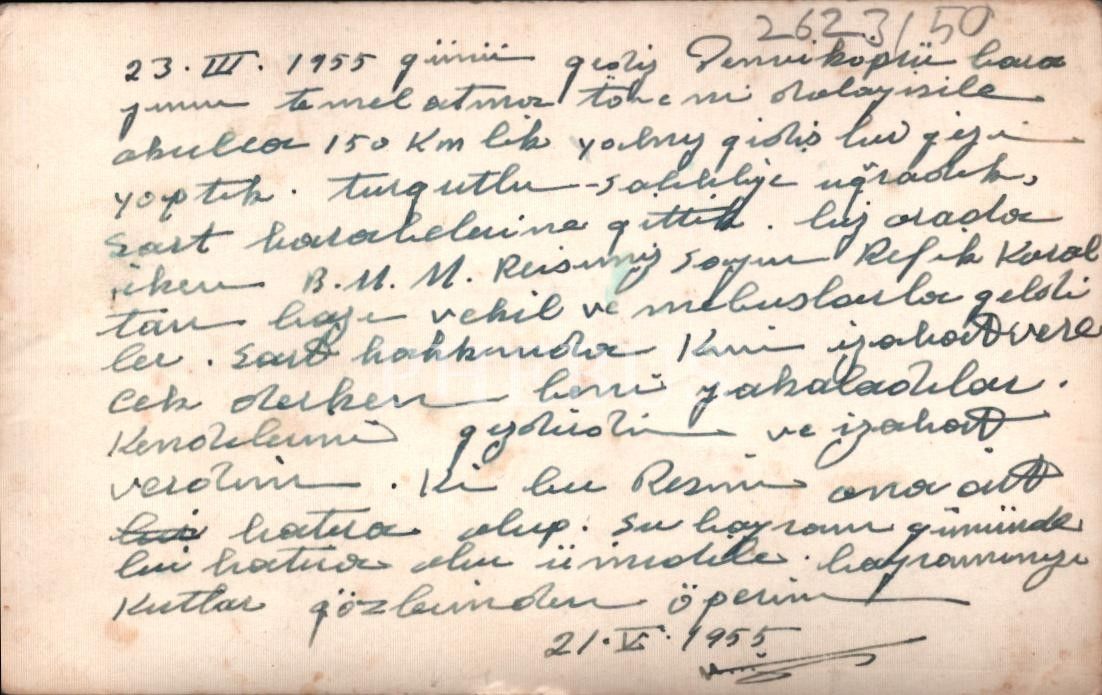 2623/50
23.III.1955 günü gediz Demirköprü bara
jının temel atma töreni dolayisile
okulca 150 Km lik yalnız gidiş bir gezi
yaptık. turgutlu-salihliye uğradık,
Sart harabelerine gittik. biz orada
iken B.M.M. Reisimiz Sayın Refik Koral
tan bazı vekil ve mebuslarla geldi
ler. Sart hakkında Kim izahat vere
cek derken beni yakaladılar.
Kendilerini gezdirdim ve izahat
verdim. Ki bu Resim ona ait
bir hatıra olup. Şu bayram gününde
bir hatıra olur ümidile. bayramınızı
Kutlar gözlerinden öperim
21.V.1955
PHEBUS